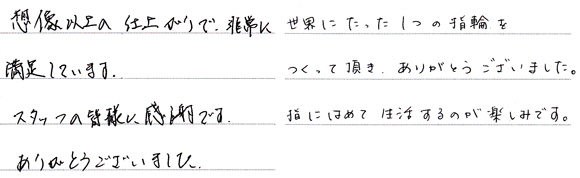 想像以上の仕上がりで、非常に
満足しています。
スタッフの皆様に感謝です。
ありがとうございました。
世界にたった1つの指輪を
つくって頂き、ありがとうございました。
指にはめて生活するのが楽しみです。